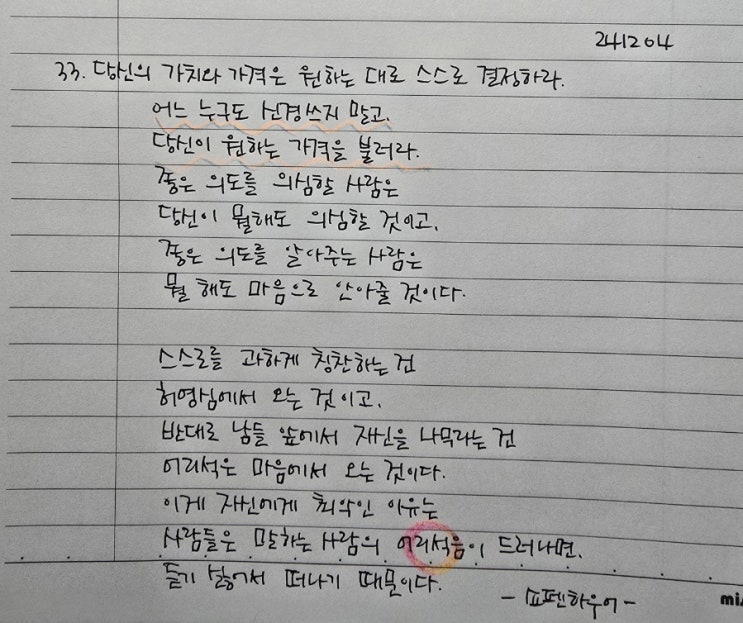 241204
33. 당신의 가치와 가격은 원하는 대로 스스로 결정하라.
어느 누구도 신경쓰지 말고,
당신이 원하는 가격을 불러라.
좋은 의도를 의심할 사람은
당신이 뭘해도 의심할 것이고,
좋은 의도를 알아주는 사람은
뭘 해도 마음으로 안아줄 것이다.
스스로를 과하게 칭찬하는 건
허영심에서 오는 것이고,
반대로 남들 앞에서 자신을 나무라는 건
어리석은 마음에서 오는 것이다.
이게 자신에게 최악인 이유는
사람들은 말하는 사람의 어리석음이 드러나면,
듣기 싫어서 떠나기 때문이다.
- 쇼펜하우어 -